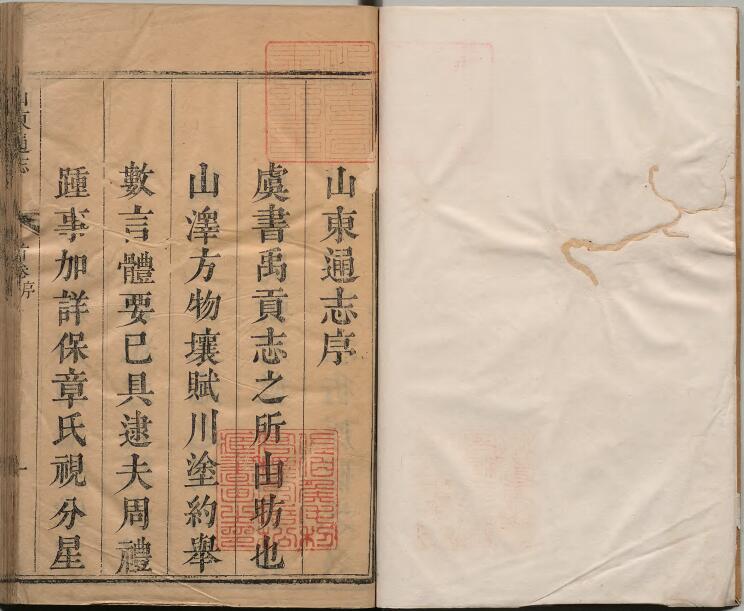 山東通志序
虞書禹貢志之所由昉也
山澤方物壤賦川塗約舉
數言體要已具逮夫周禮
踵事加詳保章氏視分星
山東通志
首卷序
一